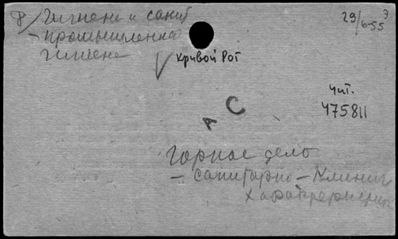 8/ Гигиена и санит
29/6-55 Э
– промышленная
гигиена
Кривой Рог
Чит.
475811
А С
горное дело
– санитарно – клинич
характеристик